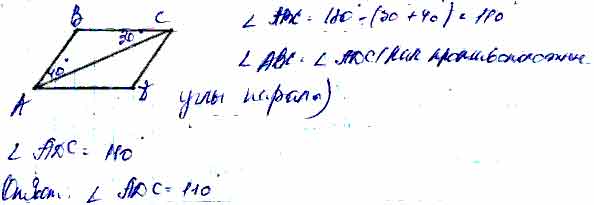 B C
30°
40°
A D
∠ ABC = 180 - (30 + 40) = 110
∠ ABC = ∠ ADC (как противоположные
углы парал)
∠ ADC = 110°
Ответ: ∠ ADC = 110°